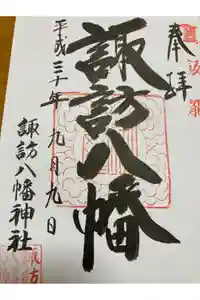 奉拝
諏訪八幡
平成三十年 九月九日
諏訪八幡神社